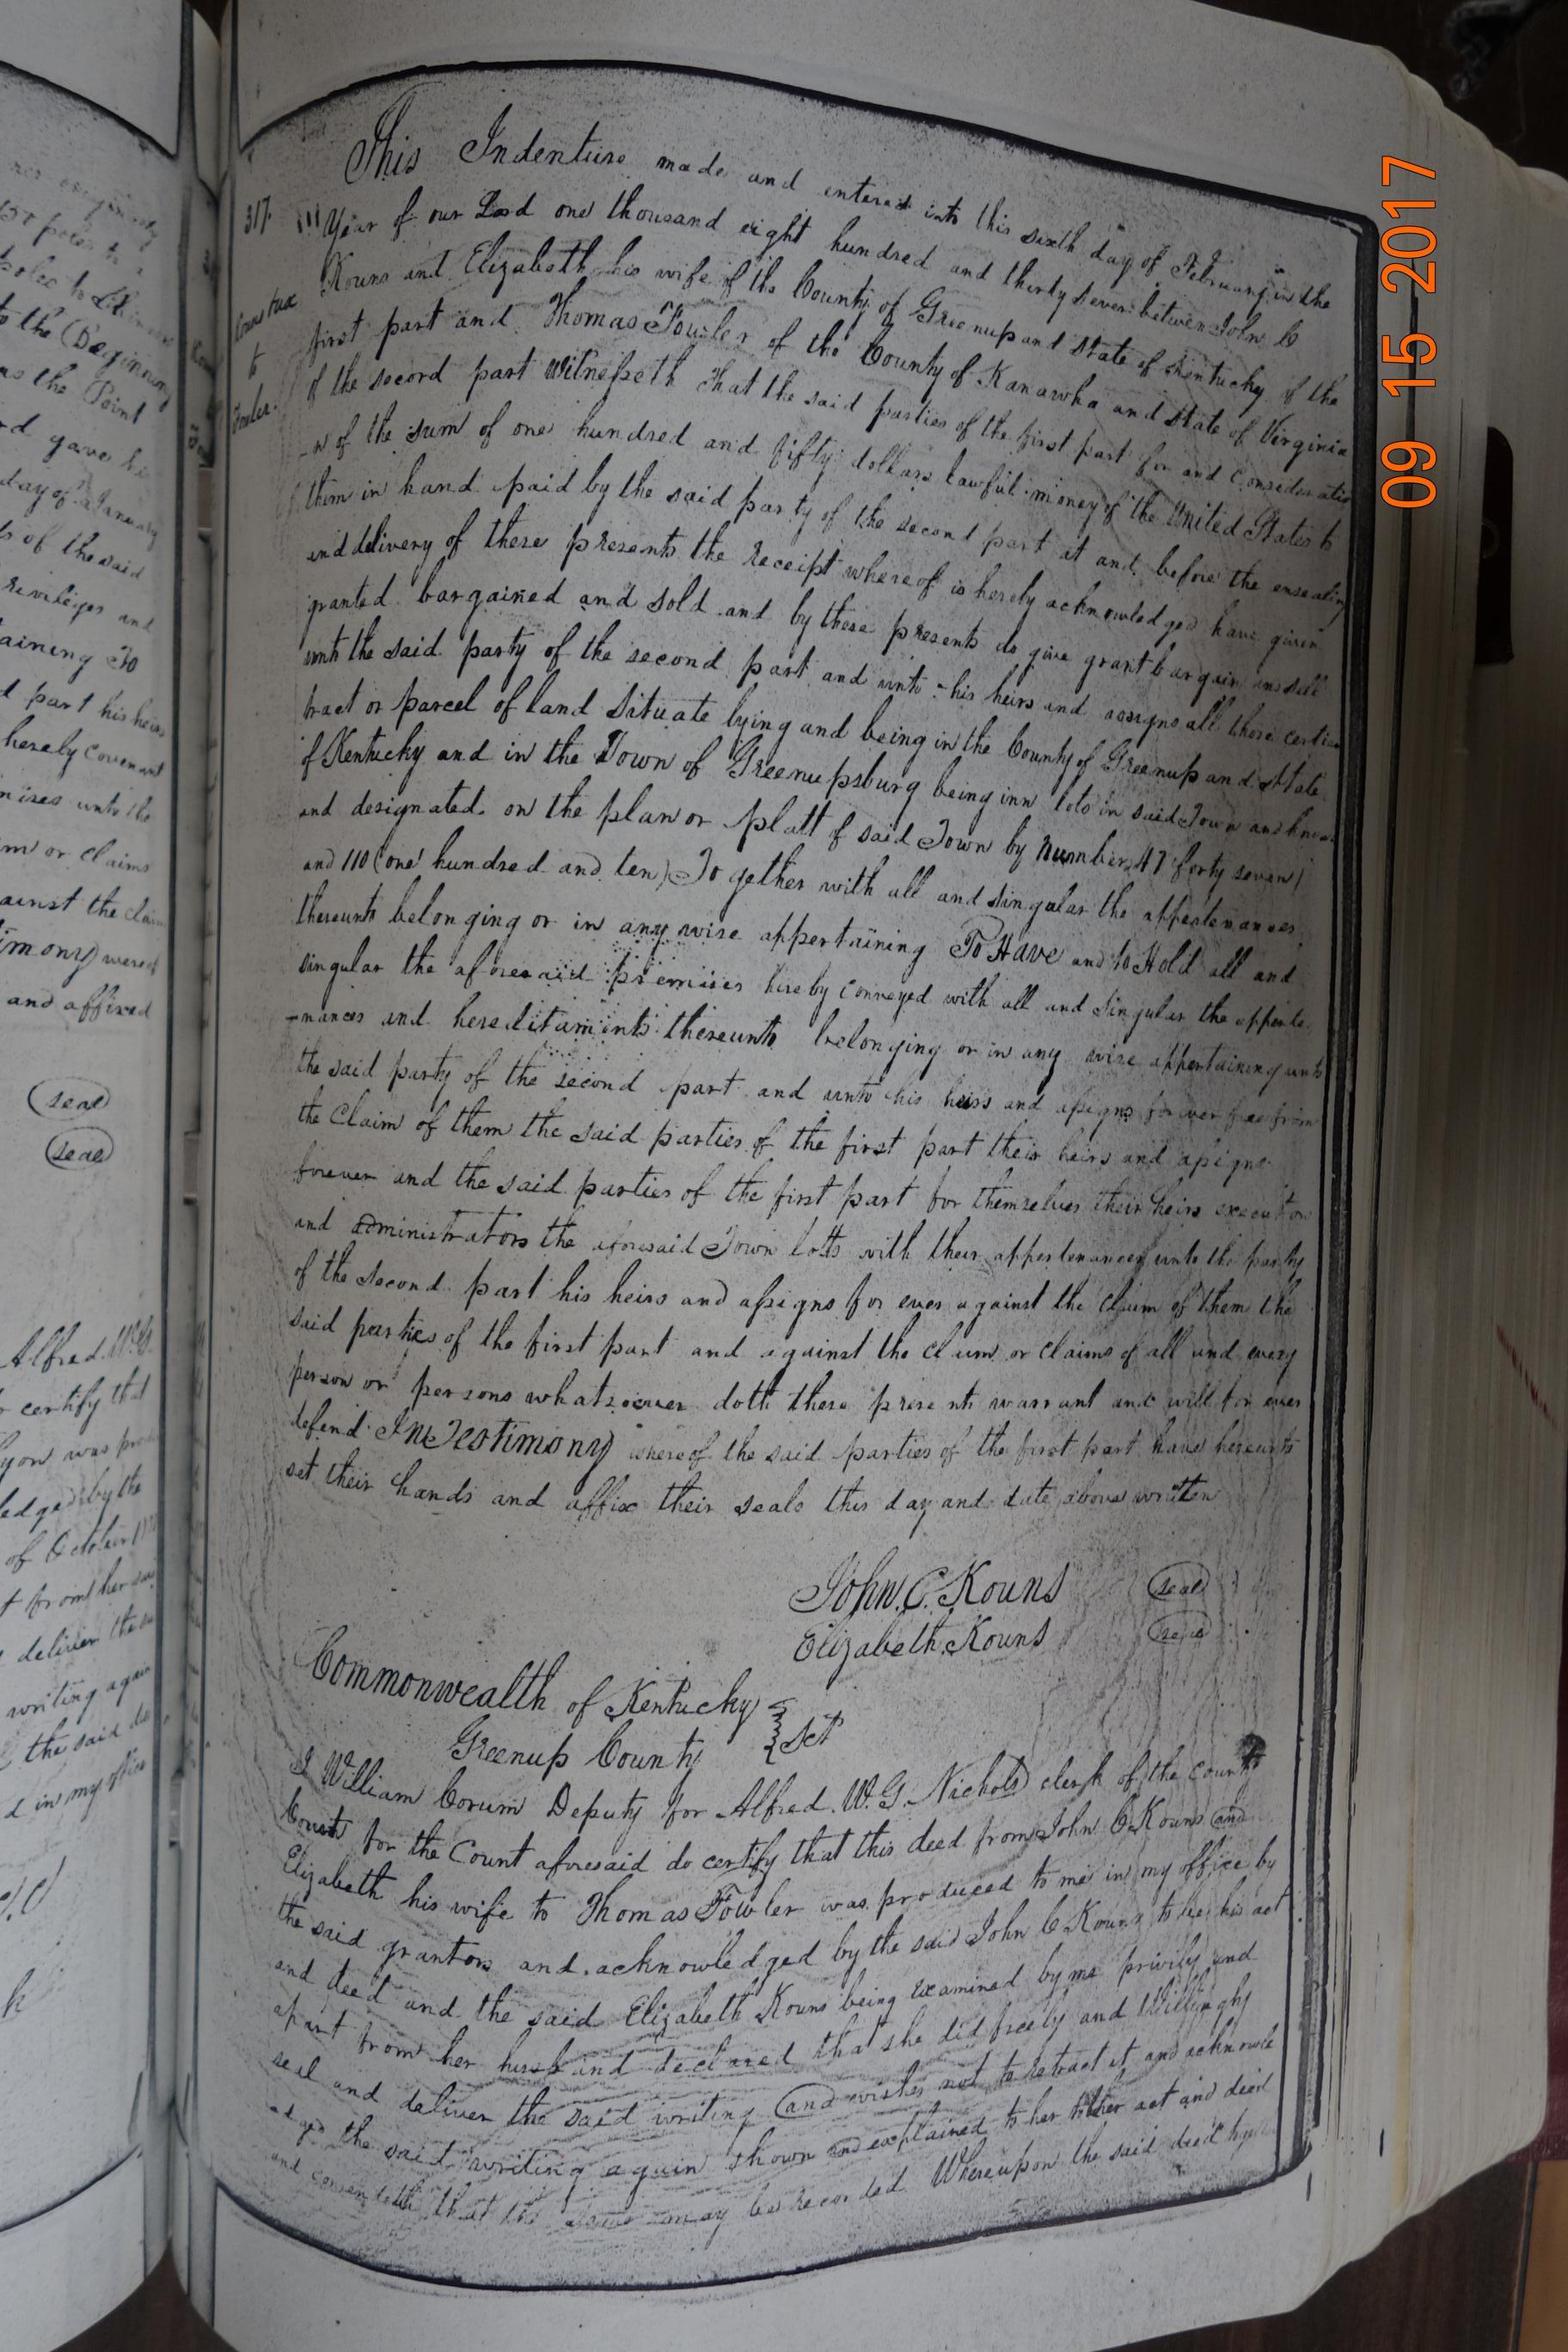 This Indenture made and entered into this sixth day of February in the
317. Year of our Lord one thousand eight hundred and thirty seven between John C
Kouns and Elizabeth his wife of the County of Greenup and State of Kentucky of the
first part and Thomas Fowler of the County of Kanawha and State of Virginia
to
of the second part Witnesseth That the said parties of the first part for and Consideratio
-n of the sum of one hundred and fifty dollars lawful money of the United States to
them in hand paid by the said party of the second part at and before the ensealing
and delivery of these presents the receipt whereof is hereby acknowledged have given
granted bargained and sold and by these presents do give grant bargain and sell
unto the said party of the second part and unto his heirs and assigns all those certain
tract or parcel of land situate lying and being in the County of Greenup and State
of Kentucky and in the Town of Greenupsburg being inn lots in said Town and known
and designated on the plan or platt of said Town by Number 47 forty seven)
and 110 (one hundred and ten) Together with all and singular the appertenances
thereunto belonging or in any wise appertaining To Have and to Hold all and
singular the aforesaid premises hereby conveyed with all and singular the apperte
-nances and hereditaments thereunto belonging or in any wise appertaining unto
the said party of the second part and unto his heirs and assigns forever free from
the Claim of them the said parties of the first part their heirs and assigns
forever and the said parties of the first part for themselves their heirs executors
and administrators the aforesaid Town lotts with their appertenances unto the party
of the second part his heirs and assigns for ever against the claim of them the
said parties of the first part and against the claim or claims of all and every
person or persons whatsoever doth these presents warrant and will for ever
defend In Testimony whereof the said parties of the first part have hereunto
set their hands and affix their seals this day and date above written
John. C. Kouns (seal)
Elizabeth. Kouns (seal)
Commonwealth of Kentucky
Greenup County } Sct
I William Corum Deputy for Alfred. W. G. Nichols clerk of the County
Courts for the Count aforesaid do certify that this deed from John C Kouns and
Elizabeth his wife to Thomas Fowler was produced to me in my office by
the said grantors and acknowledged by the said John C Kouns to be his act
and deed and the said Elizabeth Kouns being examined by me privily and
apart from her husband declared that she did freely and Willingly
seal and deliver the said writing and wishes not to retract it and acknowle
edged the said writing again shown and explained to her to be her act and deed
and consenteth that the same may be recorded Whereupon the said deed
09 15 2017
to the (Beginning
as the Point
gave
day of January
of the said
privileges and
taining To
part his heirs
hereby covenant
unto the
or claims
against the claim
and affixed
(seal)
(seal)
Alfred W. G.
certify that
was
by the
of October
from her
deliver the
writing again
the said
in my office